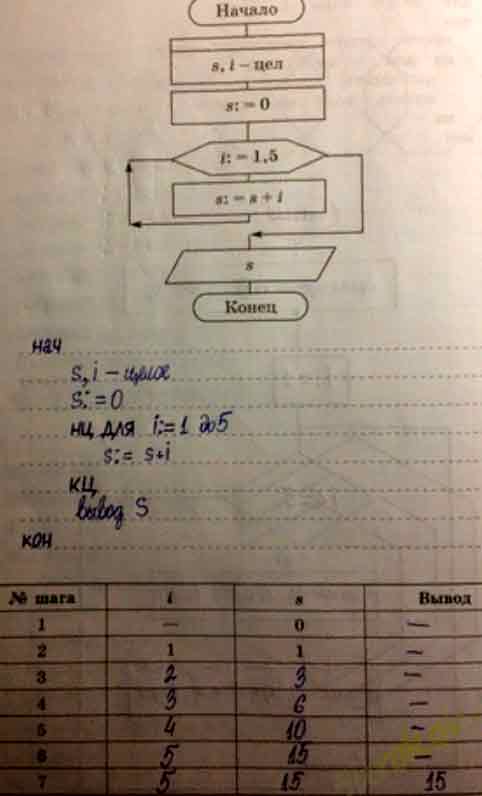 Начало
s, i – цел
s: = 0
i: = 1,5
s: = s + i
s
Конец
нач
s, i – целое
s: = 0
нц для i: = 1 до 5
s: = s+i
кц
вывод s
кон
№ шага i s Вывод
1 — 0 —
2 1 1 —
3 2 3 —
4 3 6 —
5 4 10 —
6 5 15 —
7 5 15 15